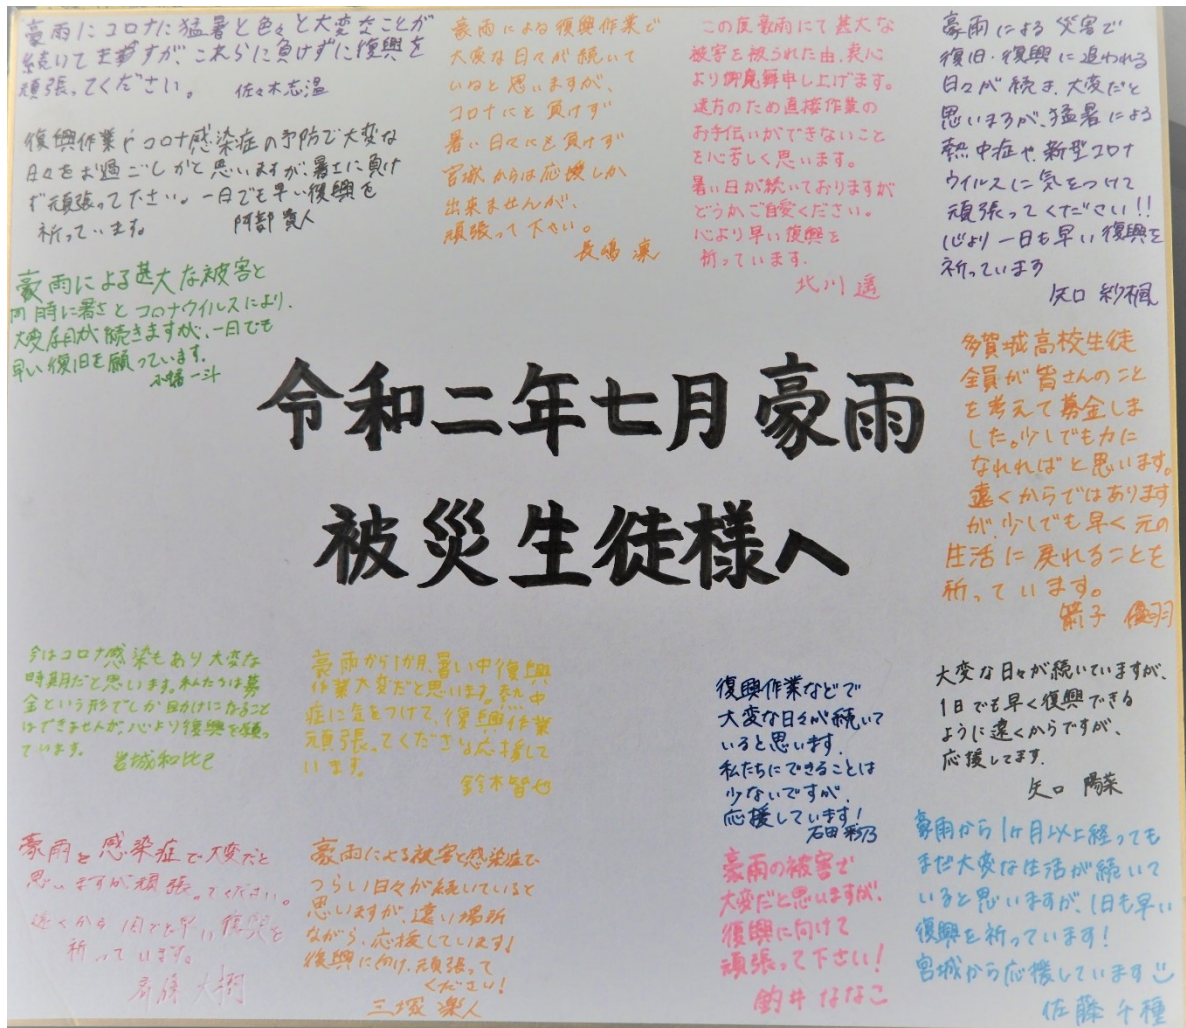 豪雨にコロナに猛暑と色々と大変なことが
続いてますが、これらに負けずに復興を
頑張ってください。
佐々木志温
復興作業やコロナ感染症の予防で大変な
日々をお過ごしかと思いますが、暑さに負け
ず頑張って下さい。一日でも早い復興を
祈っています。
阿部寛人
豪雨による甚大な被害と
同時に暑さとコロナウイルスにより、
大変な日が続きますが、一日でも
早い復旧を願っています。
小幡一斗
豪雨による復興作業で
大変な日々が続いて
いると思いますが、
コロナにも負けず
暑い日々にも負けず
宮城からは応援しか
出来ませんが、
頑張って下さい。
長嶋凛
この度豪雨にて甚大な
被害を被られた由、衷心
より御見舞申し上げます。
遠方のため直接作業の
お手伝いができないこと
を心苦しく思います。
暑い日が続いておりますが
どうかご自愛ください。
心より早い復興を
祈っています。
北川遥
豪雨による災害で
復旧・復興に追われる
日々が続き、大変だと
思いますが、猛暑による
熱中症や、新型コロナ
ウイルスに気をつけて
頑張ってください!!
心より一日も早い復興を
祈っています
矢口紗楓
多賀城高校生徒
全員が皆さんのこと
を考えて募金しま
した。少しでも力に
なれればと思います。
遠くからではあります
が、少しでも早く元の
生活に戻れることを
祈っています。
箭子優羽
令和二年七月豪雨
被災生徒様へ
今はコロナ感染もあり大変な
時期だと思います。私たちは募
金という形でしか助けになること
はできませんが、心より復興を願っ
ています。
岩城和比己
豪雨から1か月、暑い中復興
作業大変だと思います。熱中
症に気をつけて、復興作業
頑張ってください。応援して
います。
鈴木智也
復興作業などで
大変な日々が続いて
いると思います。
私たちにできることは
少ないですが、
応援しています!
石田彩乃
大変な日々が続いていますが、
1日でも早く復興できる
ように遠くからですが、
応援してます。
矢口陽菜
豪雨と感染症で大変だと
思いますが頑張ってください。
遠くから1日でも早い復興を
祈っています。
斉藤大樹
豪雨による被害と感染症で
つらい日々が続いていると
思いますが、遠い場所
ながら、応援しています!
復興に向け、頑張って
ください!
三塚楽人
豪雨の被害で
大変だと思いますが、
復興に向けて
頑張って下さい!
的井ななこ
豪雨から1ヶ月以上経っても
まだ大変な生活が続いて
いると思いますが、1日も早い
復興を祈っています!
宮城から応援しています
佐藤千種